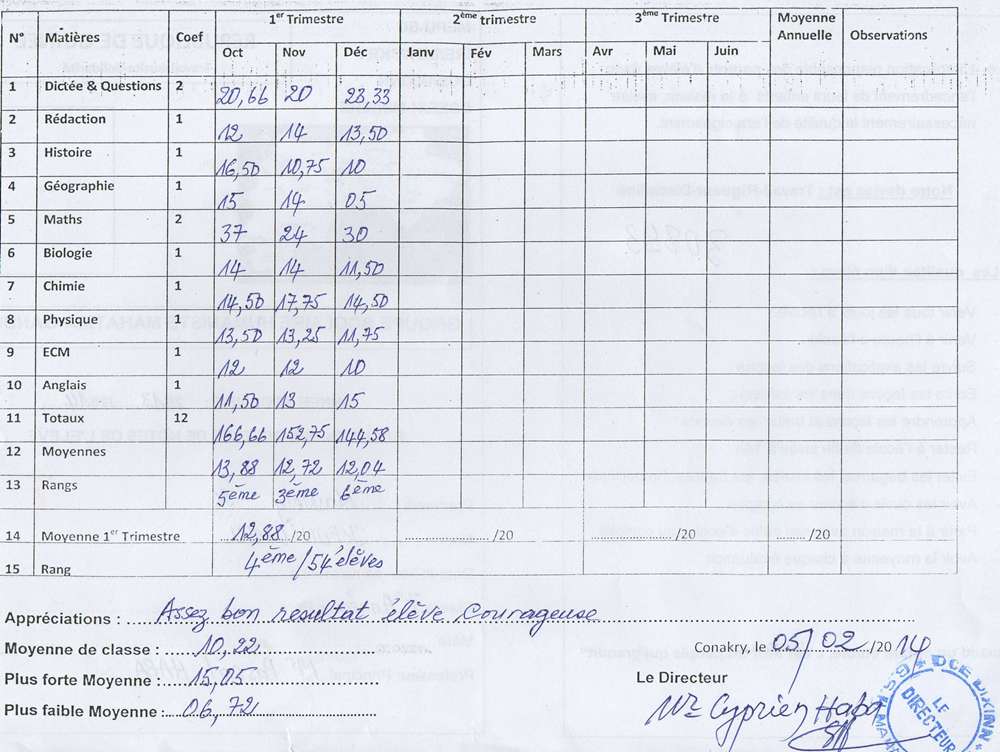 N° Matières Coef 1er Trimestre 2ème trimestre 3ème Trimestre Moyenne Annuelle Observations
Oct Nov Déc Janv Fév Mars Avr Mai Juin
1 Dictée & Questions 2 20,66 20 23,33
2 Rédaction 1 12 14 13,50
3 Histoire 1 16,50 10,75 10
4 Géographie 1 15 14 05
5 Maths 2 37 24 30
6 Biologie 1 14 14 11,50
7 Chimie 1 14,50 17,75 14,50
8 Physique 1 13,50 13,25 11,75
9 ECM 1 12 12 10
10 Anglais 1 11,50 13 15
11 Totaux 12 166,66 152,75 144,58
12 Moyennes 13,88 12,72 12,04
13 Rangs 5ème 3ème 6ème
14 Moyenne 1er Trimestre 12,88/20 /20 /20 /20
15 Rang 4ème/54 élèves
Appréciations : Assez bon resultat élève Courageuse
Moyenne de classe : 10,22
Conakry, le 05/02/2014
Plus forte Moyenne : 15,05
Le Directeur
Plus faible Moyenne : 06,72
Mr Cyprien Haba
DCE DIXINN
LE DIRECTEUR